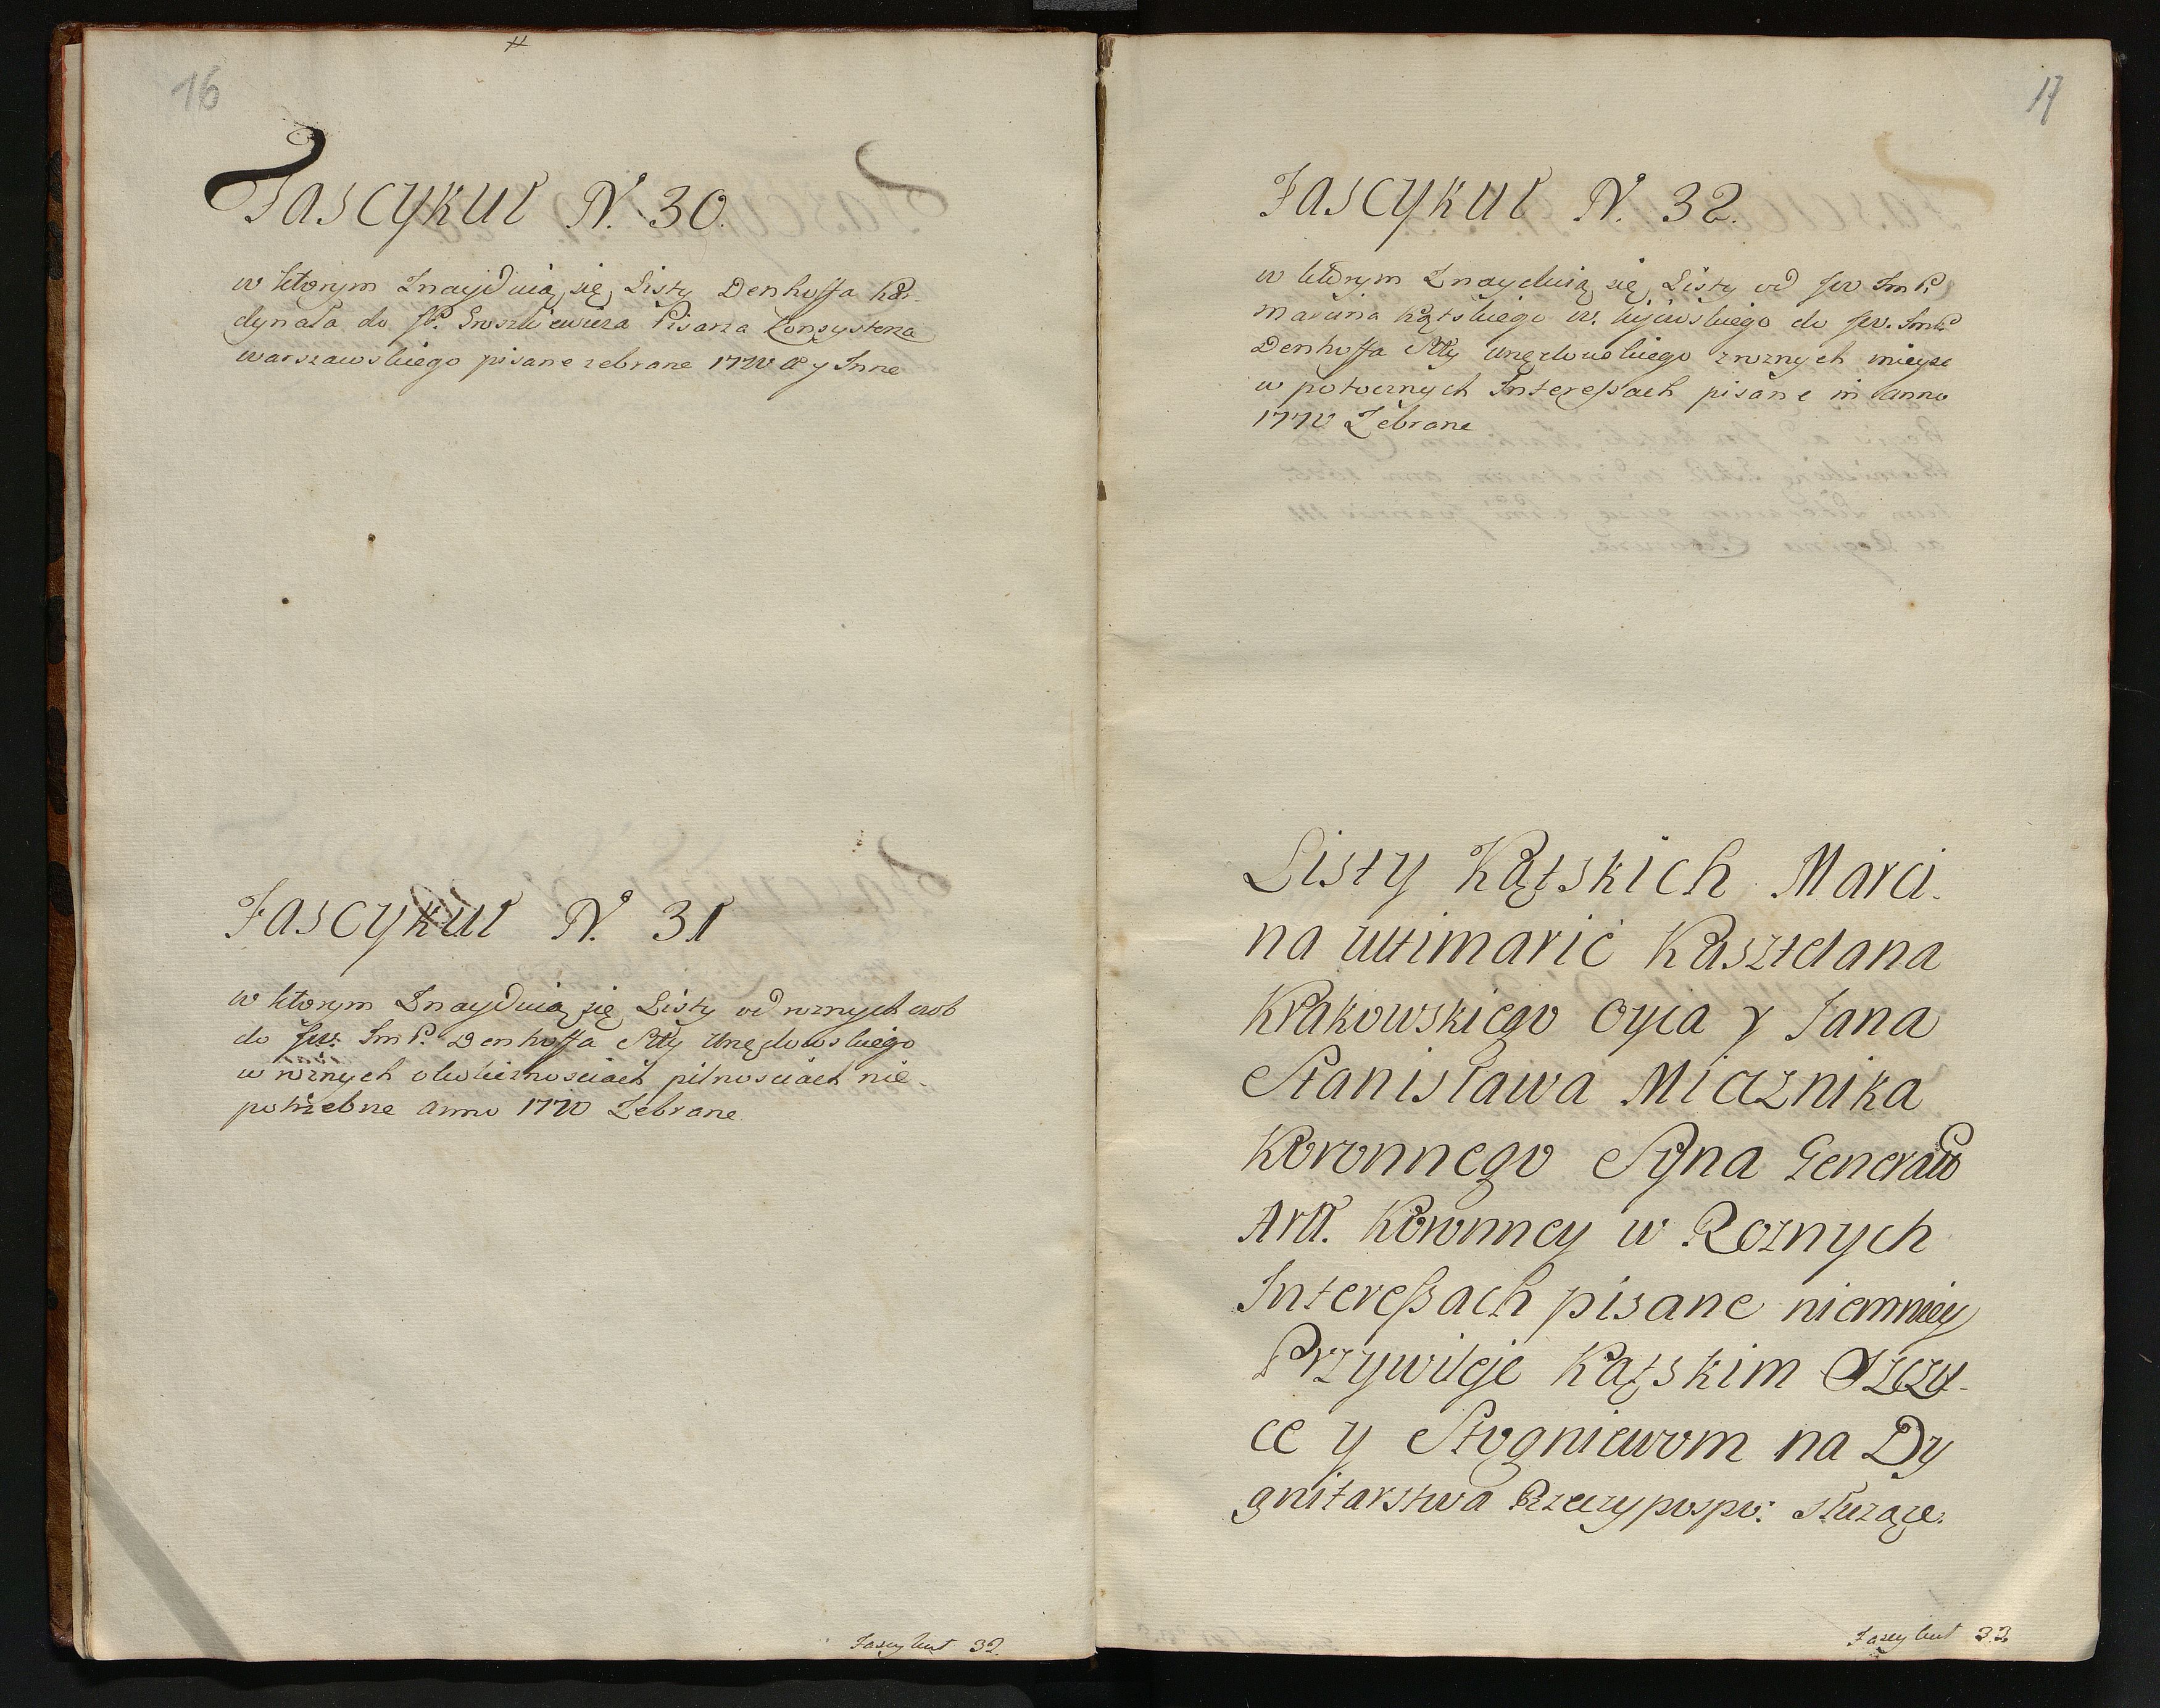 16
Fascykuł N. 30.
w ktorym Znayduią się Listy Denhoffa Kar-
dynała do JP. Groszkiewicza Pisarza Consystorza
warszawskiego pisane zebrane 1770 y Inne
Fascykuł N. 31
w ktorym Znayduią się Listy od roznych osob
do Jw. Im P. Denhoffa Stty Urzędowskiego
w roznych okolicznosciach pilnosciach nie-
potrzebne anno 1770 Zebrane
Fascykuł 32.
17
Fascykuł N. 32.
w ktorym Znayduią się Listy od Jw Im P.
Marcina Kątskiego w. kijowskiego do Jw. Im P.
Denhoffa Stty Urzędowskiego z roznych mieysc
w potocznych Interessach pisane in anno
1770 Zebrane
Listy Kątskich Marci-
na ultimarie Kasztelana
Krakowskiego Oyca y Jana
Stanisława Miecznika
Koronnego Syna Generałow
Artl. Koronney w Roznych
Interessach pisane niemniey
Przywileje Kątskim
ce y Stogniewom na Dy
gnitarstwa Rzeczypospo: służące.
Fascykuł 33